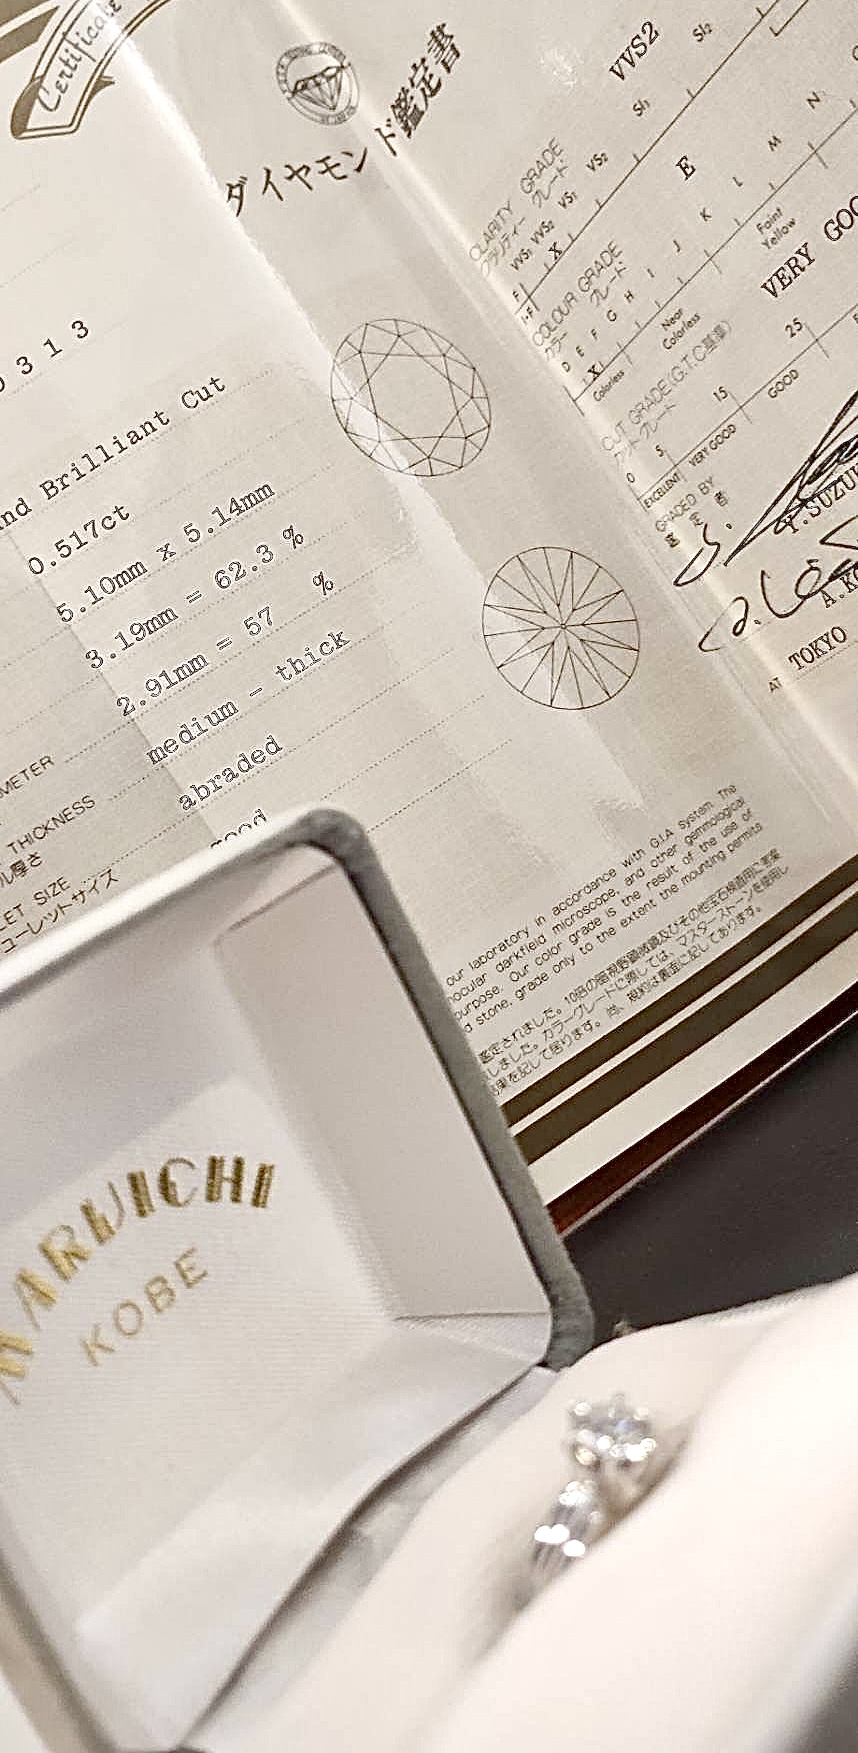 Certificate
ダイヤモンド鑑定書
0 3 1 3
Brilliant Cut
0.517ct
5.10mm x 5.14mm
3.19mm = 62.3 %
2.91mm = 57 %
medium - thick
THICKNESS
abraded
good
コーレットサイズ
VVS2
CLARITY GRADE
クラリティー グレード
VVS₁ VVS₂ VS₁ VS₂ SI₁ SI₂
X
E
COLOUR GRADE
カラー グレード
D E F G H I J K L M N
X
Colorless
Near Colorless
Faint Yellow
VERY
CUT GRADE (G.T.C基準)
カット グレード
0 5 15 25
EXCELLENT VERY GOOD GOOD
GRADED BY
鑑定者
A.
AT TOKYO
our laboratory in accordance with G.I.A System. The
darkfield microscope, and other gemmological
purpose. Our color grade is the result of the use of
stone, grade only to the extent the mounting permits
鑑定されました。10倍の暗視野顕微鏡及びその他宝石検査用に考案
しました。カラーグレードに際しては、マスターストーンを使用し
を記して居ります。尚、規約は裏面に記してあります。
MARUICHI
KOBE